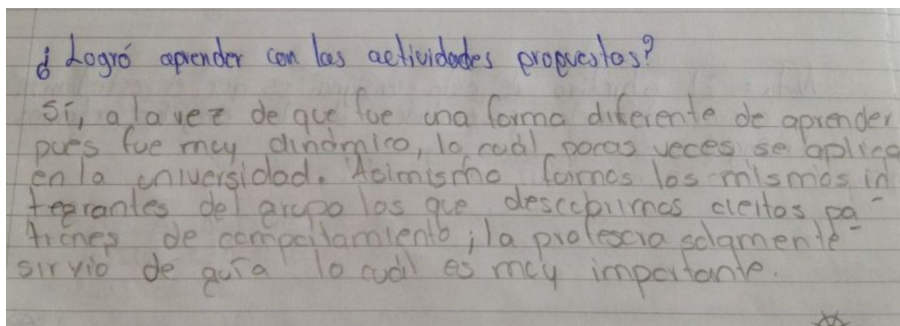 ¿Logró aprender con las actividades propuestas?
Sí, a la vez de que fue una forma diferente de aprender
pues fue muy dinámico, lo cuál pocas veces se aplica
en la universidad. Asimismo fuimos los mismos in
tegrantes del grupo los que descubrimos ciertos pa-
trones de comportamiento; la profesora solamente
sirvió de guía lo cuál es muy importante.